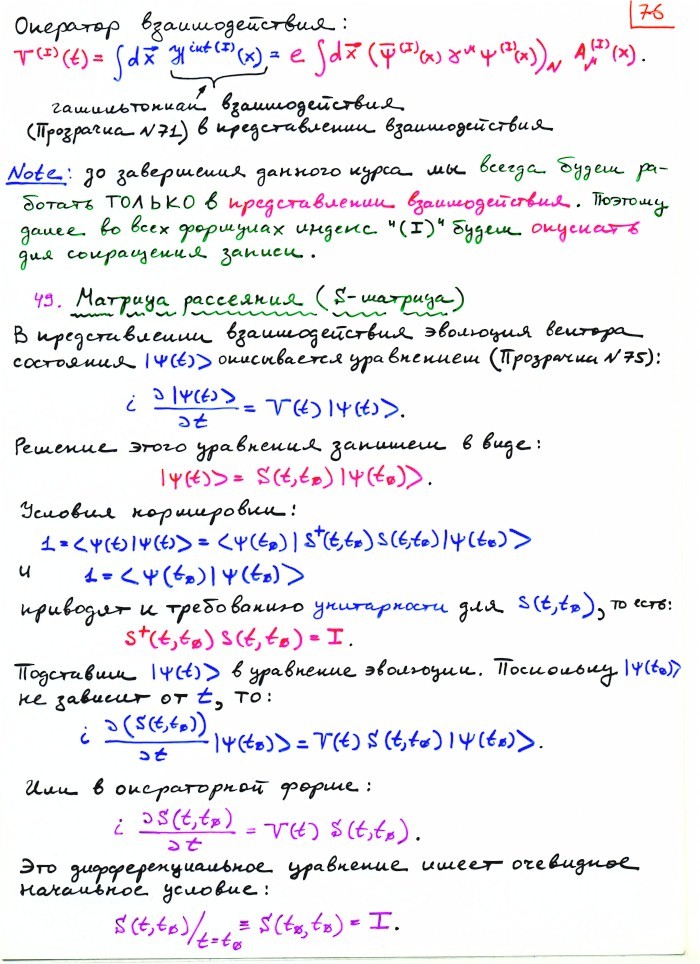 76
Оператор взаимодействия:
V^(I)(t) = ∫dx⃗ ℋ^int(I)(x) = e ∫dx⃗ (Ψ̄^(I)(x) γ^μ Ψ^(I)(x))_N A_μ^(I)(x).
гамильтониан взаимодействия
(Прозрачка N71) в представлении взаимодействия
Note: до завершения данного курса мы всегда будем ра-
ботать ТОЛЬКО в представлении взаимодействия. Поэтому
далее во всех формулах индекс "(I)" будем опускать
для сокращения записи.
49. Матрица рассеяния (S-матрица)
В представлении взаимодействия эволюция вектора
состояния |Ψ(t)> описывается уравнением (Прозрачка N75):
i ∂|Ψ(t)>/∂t = V(t) |Ψ(t)>.
Решение этого уравнения запишем в виде:
|Ψ(t)> = S(t,t∅) |Ψ(t∅)>.
Условия нормировки:
1 = <Ψ(t)|Ψ(t)> = <Ψ(t∅)| S⁺(t,t∅) S(t,t∅) |Ψ(t∅)>
и 1 = <Ψ(t∅)|Ψ(t∅)>
приводят к требованию унитарности для S(t,t∅), то есть:
S⁺(t,t∅) S(t,t∅) = I.
Подставим |Ψ(t)> в уравнение эволюции. Поскольку |Ψ(t∅)>
не зависит от t, то:
i ∂(S(t,t∅))/∂t |Ψ(t∅)> = V(t) S(t,t∅) |Ψ(t∅)>.
Или в операторной форме:
i ∂S(t,t∅)/∂t = V(t) S(t,t∅).
Это дифференциальное уравнение имеет очевидное
начальное условие:
S(t,t∅)/_{t=t∅} ≡ S(t∅,t∅) = I.